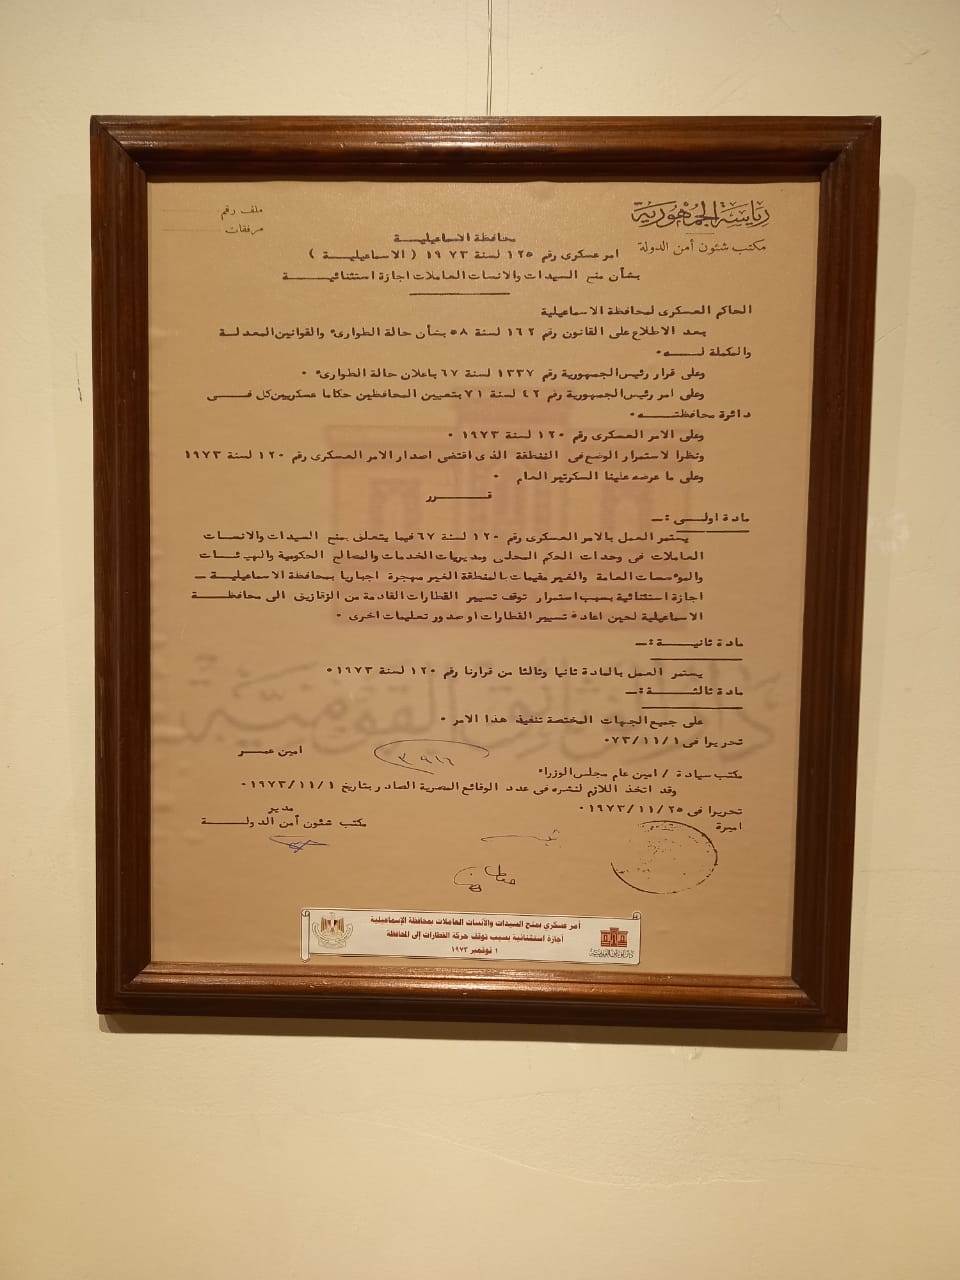 رياسة الجمهورية
مكتب شئون أمن الدولة
ملف رقم
مرفقات
محافظة الاسماعيليـــة
امر عسكرى رقم ١٢٥ لسنة ١٩٧٣ ( الاسماعيليـة )
بشأن منح السيدات والانسات العاملات اجازة استثنائيـــــة
الحاكم العسكرى لمحافظة الاسماعيلية
بعد الاطلاع على القانون رقم ١٦٢ لسنة ٥٨ بشأن حالة الطوارىء والقوانين المعدلة
والمكملة لـــــه ٠
وعلى قرار رئيس الجمهورية رقم ١٣٣٧ لسنة ٦٧ باعلان حالة الطوارىء ٠
وعلى امر رئيس الجمهورية رقم ٤٢ لسنة ٧١ بتعيين المحافظين حكاما عسكريين كل فـــى
دائرة محافظتـــــه ٠
وعلى الامر العسكرى رقم ١٢٠ لسنة ١٩٧٣ ٠
ونظرا لاستمرار الوضع فى المنطقة الذى اقتضى اصدار الامر العسكرى رقم ١٢٠ لسنة ١٩٧٣
وعلى ما عرضه علينا السكرتير العام ٠
قـــــــرر
مادة اولــى :ــ
يستمر العمل بالامر العسكرى رقم ١٢٠ لسنة ٦٧ فيما يتعلق بمنح السيدات والانسات
العاملات فى وحدات الحكم المحلى ومديريات الخدمات والمصالح الحكومية والهيئـات
والمؤسسات العامة والغير مقيمات بالمنطقة الغير مهجرة اجباريا بمحافظة الاسماعيليـة ــ
اجازة استثنائية بسبب استمرار توقف تسيير القطارات القادمة من الزقازيق الى محافظـــة
الاسماعيلية لحين اعادة تسيير القطارات او صدور تعليمات اخرى ٠
مادة ثانيـــــة :ــ
يستمر العمل بالمادة ثانيا وثالثا من قرارنا رقم ١٢٠ لسنة ١٩٧٣ ٠
مادة ثالثـــــة :ــ
على جميع الجهات المختصة تنفيذ هذا الامر ٠
تحريرا فى ٧٣/١١/١ ٠
امين عمـــر
مكتب سيادة / امين عام مجلس الوزراء
وقد اتخذ اللازم لنشره فى عدد الوقائع المصرية الصادر بتاريخ ١٩٧٣/١١/١ ٠
تحريرا فى ١٩٧٣/١١/٢٥ ٠
اميرة
مدير
مكتب شئون أمن الدولــــــة
دار الوثائق القومية
أمر عسكري بمنح السيدات والآنسات العاملات بمحافظة الإسماعيلية
أجازة استثنائية بسبب توقف حركة القطارات إلى المحافظة
١ نوفمبر ١٩٧٣
دار الوثائق القومية